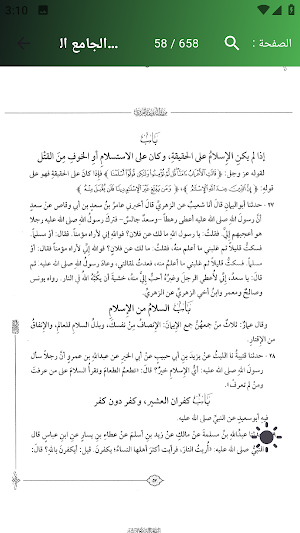 3:10
الجامع ال...
58 / 658
الصفحة :
بَابٌ
إذا لم يكنِ الإسلامُ على الحقيقةِ، وكان على الاستسلامِ أو الخوفِ مِنَ القتلِ
لقوله عز وجل: ﴿قَالَتِ الْأَعْرَابُ آمَنَّا قُل لَّمْ تُؤْمِنُوا وَلَٰكِن قُولُوا أَسْلَمْنَا﴾ فإذا كانَ على الحقيقةِ فهو على
قولِهِ: ﴿إِنَّ الدِّينَ عِندَ اللَّهِ الْإِسْلَامُ﴾، ﴿وَمَن يَبْتَغِ غَيْرَ الْإِسْلَامِ دِينًا فَلَن يُقْبَلَ مِنْهُ﴾
٢٧ - حدثنا أبو اليمانِ قالَ أنا شعيبٌ عن الزهريِّ قالَ أخبرني عامرُ بنُ سعدِ بنِ أبي وقاصٍ عنْ سعدٍ
أنَّ رسولَ اللهِ صلى الله عليه أعطى رهطاً -وسعدٌ جالسٌ- فتركَ رسولُ اللهِ صلى الله عليه رجلاً
هو أعجبُهم إليَّ. فقلتُ: يا رسولَ اللهِ ما لكَ عن فلانٍ؟ فوالله إني لأراه مؤمناً. فقالَ: أوْ مسلماً.
فسكتُّ قليلاً ثم غلبني ما أعلمُ منهُ، فقلتُ: ما لك عن فلانٍ؟ فوالله إني لأراه مؤمناً فقال: أوْ
مسلماً. فسكتُّ قليلاً ثم غلبني ما أعلمُ منه، فعدتُ لمقالتي، وعادَ رسولُ اللهِ صلى الله عليه. ثم
قال: يا سعدُ، إني لأُعطي الرجلَ وغيرُهُ أحبُّ إليَّ منهُ، خشيةَ أنْ يَكُبَّهُ اللهُ في النارِ. رواه يونس
وصالحٌ ومعمر وابنُ أخي الزهري عن الزهري.
بَابُ السلامُ من الإسلامِ
وقال عمارٌ: ثلاثٌ منْ جمعهُنَّ جمع الإيمانَ: الإنصافُ مِنْ نفسكَ، وبذلُ السلامِ للعالمِ، والإنفاقُ
من الإقتارِ.
٢٨ - حدثنا قتيبةُ نا الليثُ عنْ يزيدَ بنِ أبي حبيبٍ عنْ أبي الخيرِ عن عبدِاللهِ بن عمرٍو أنَّ رجلاً سألَ
رسولَ اللهِ صلى الله عليه: أيُّ الإسلامِ خيرٌ؟ قالَ: «تطعمُ الطعامَ وتقرأُ السلامَ على من عرفتَ
ومنْ لم تعرفْ».
بَابُ كفران العشير، وكفر دون كفر
فيه أبوسعيدٍ عن النبيِّ صلى الله عليه.
عبدُاللهِ بنُ مسلمةَ عنْ مالكٍ عنْ زيدِ بنِ أسلمَ عنْ عطاءِ بنِ يسارٍ عنِ ابنِ عباسٍ قال
النبيُّ صلى الله عليه: «أُريتُ النارَ، فرأيت أكثرَ أهلِها النساءُ؛ يكفرنَ. قيلَ: أيكفرنَ باللهِ؟ قالَ:
٥٧